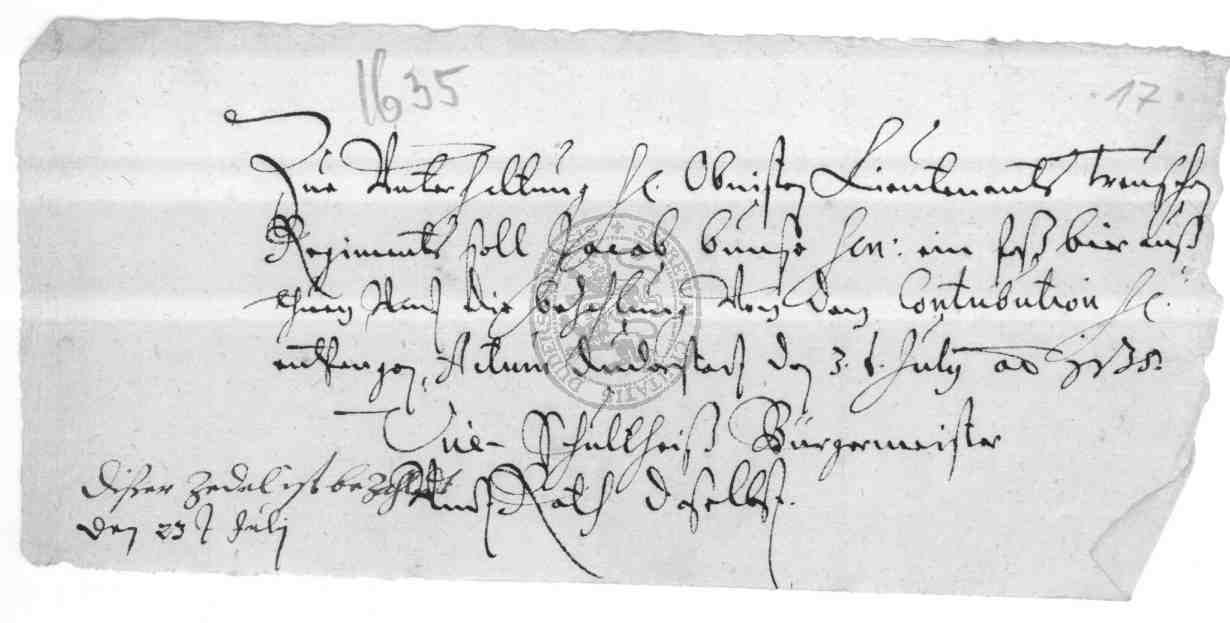 1635
17
Zue Unterhaltung H. Obristen Lieutenants Treuschen
Regiments soll Jacob bunse sen: ein faß bier auß
thuen Und die bezahlung Von den Contribution H.
entfangen, Actum Duderstadt den 3. t. July ao 1635.
Die Schultheiß Bürgermeister
Undt Rath daselbst.
dißer Zedel ist bezahlt
den 23 t Julij